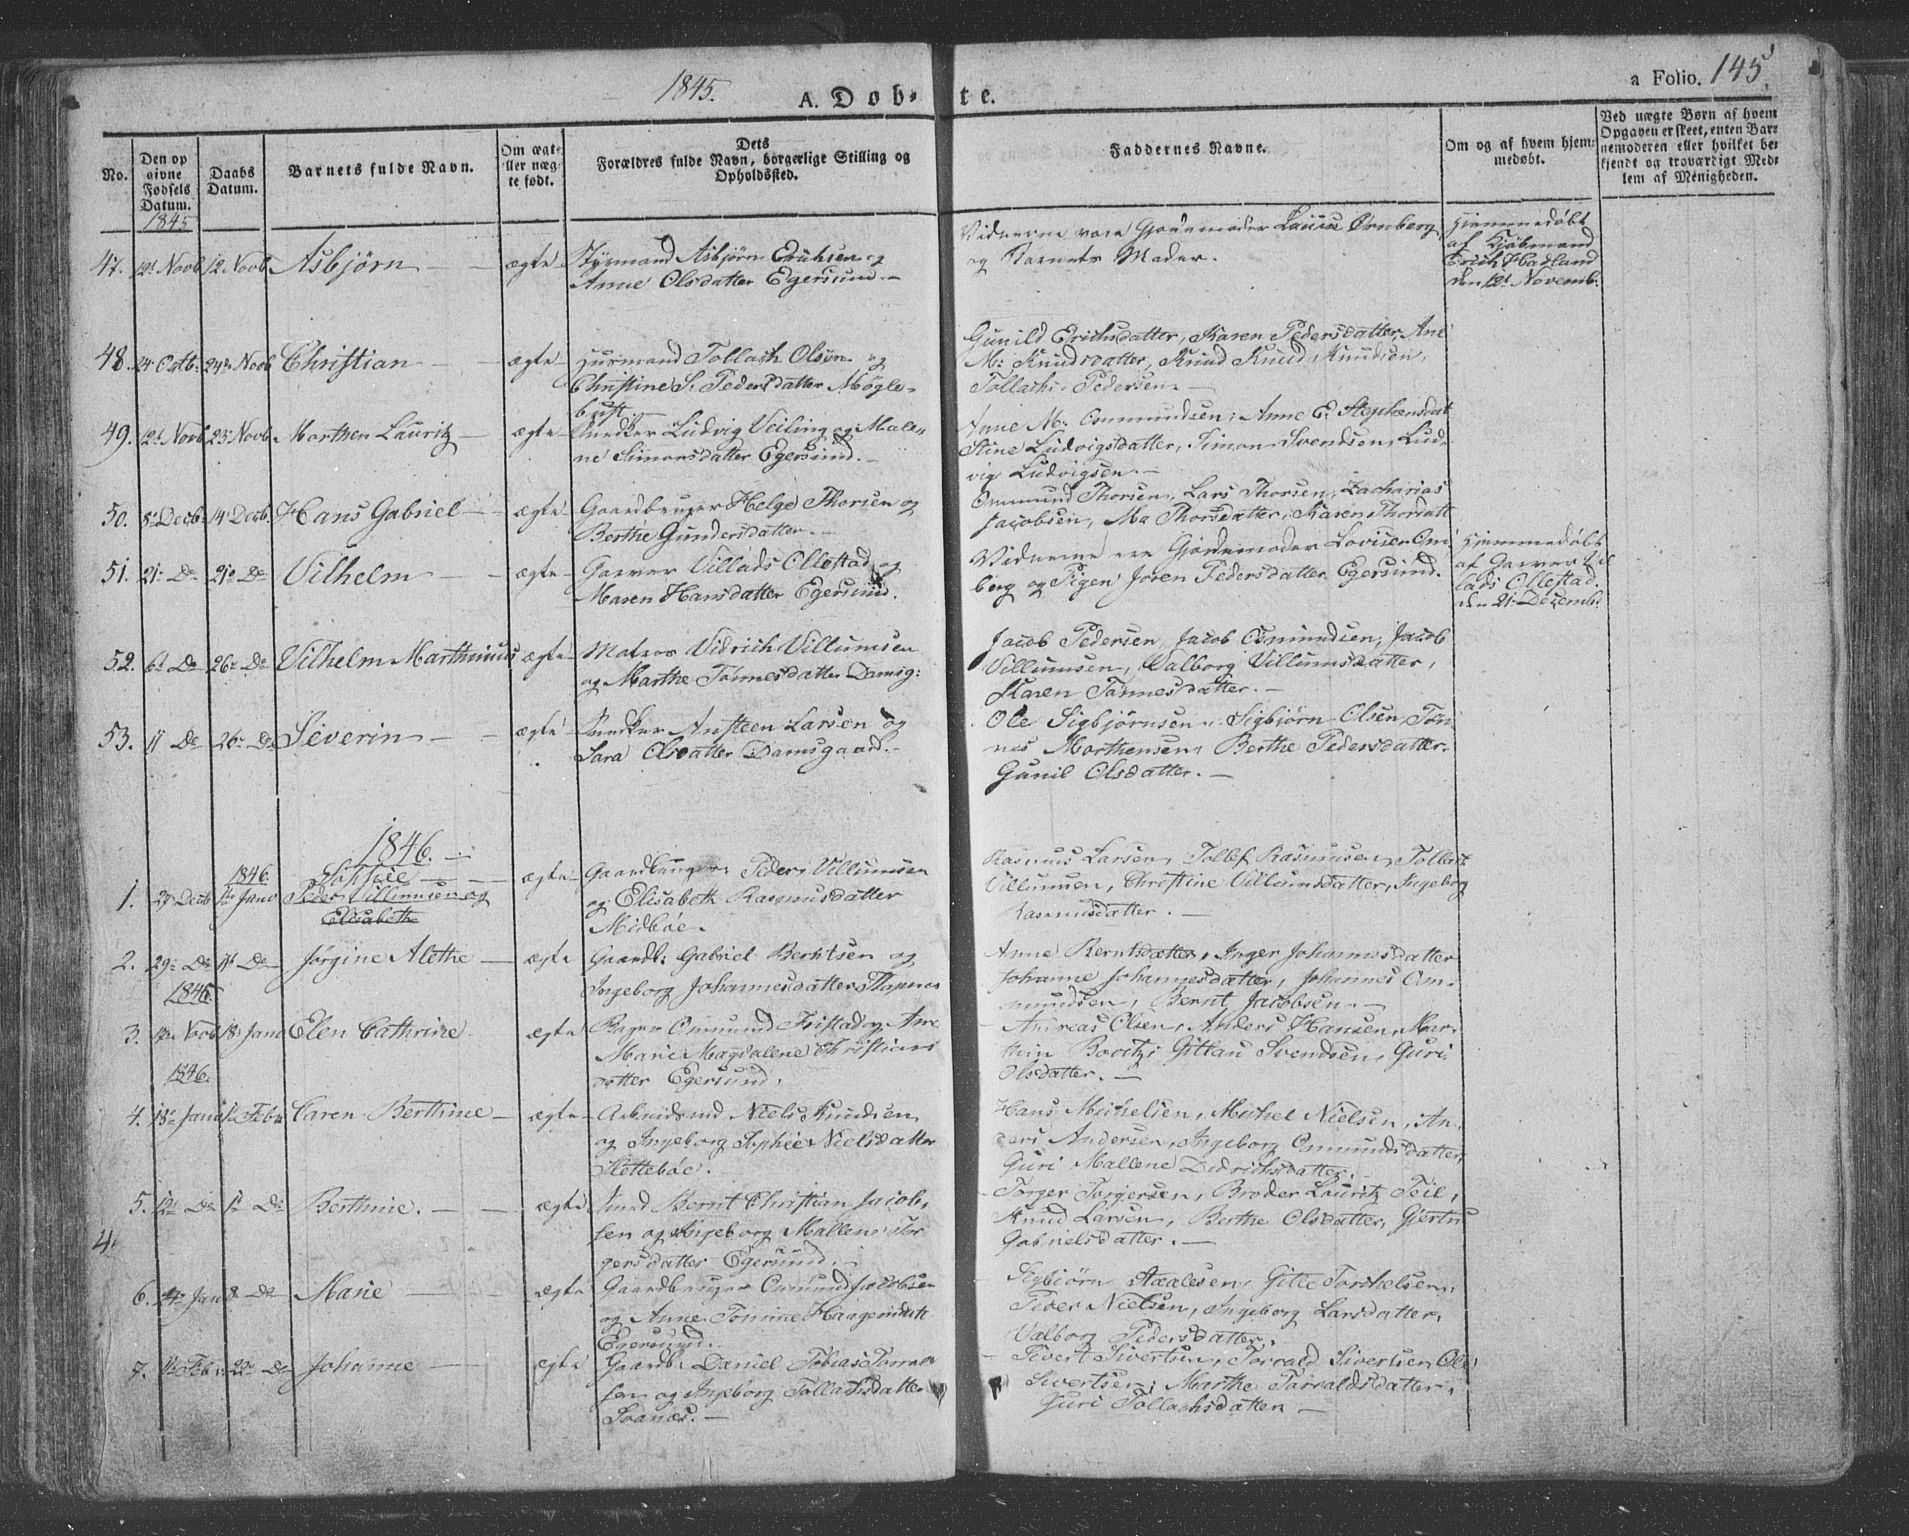 1845. A. Døb-te. a Folio. 145.
No.
Den opgivne Fødsels Datum.
Daabs Datum.
Barnets fulde Navn.
Om ægte eller nægte født.
Dets Forældres fulde Navn, borgerlige Stilling og Opholdssted.
Faddernes Navne.
Om og af hvem hjemmedøbt.
Ved uægte Børn af hvem Opgaven er skeet, enten Barnemoderen eller hvilket bekjendt og troværdigt Medlem af Menigheden.
1845
47. 12t Novb 12. Novb Asbjörn ægte Styrmand Asbjörn Erichsen og
Anne Olsdatter Egersund.
Vidnerne vare Gjordemoder Lauise Örnberg,
og Barnets Moder.
Hjemmedöbt
af Kjöbmand
Erich Hadland
den 12t Novemb.
48. 24 Octb. 24de Novb Christian ægte Huusmand Tollach Olsen og
Christine S. Pedersdatter Mögle-
bust.
Gunild Erichsdatter, Karen Pedersdatter, Ane
M. Knudsdatter, Knud Knud Knudsen,
Tollach Pedersen.
49. 12t Novb 23 Novb Morthen Lauritz ægte Snedker Ludvig Veiling og Male-
ne Simonsdatter Egersund.
Anne M. Ommundsen, Anne E. Stephensdat
Stine Ludvigsdatter, Simon Svendsen, Lud-
vig Ludvigsen.
50. 8 Decb. 14 Decb. Hans Gabriel ægte Gaardbruger Helge Thorsen og
Berthe Gundersdatter.
Ommund Thorsen, Lars Thorsen, Zacharias
Jacobsen, Ma Thorsdatter, Karen Thorsdatt
51. 21 Do 21de Do Vilhelm ægte Garver Villads Ollestad og
Maren Hansdatter Egersund.
Vidnerne ere Gjordemoder Lovise Örn
berg og Pigen Joren Pedersdatter Egersund.
Hjemmedöbt
af Garver Vil
lads Ollestad.
den 21 Decemb.
52. 6t Do 26de Do Vilhelm Marthinius ægte Matros Didrich Villumsen
og Marthe Tönnesdatter Damsg:
Jacob Pedersen, Jacob Osmundsen, Jacob
Villumsen, Valborg Villumsdatter,
Karen Tönnesdatter.
53. 11 Do 26 Do Severin ægte Snedker Ansteen Larsen og
Sara Olsdatter Damsgaard.
Ole Sigbjörnsen, Sigbjörn Olsen, Tön-
nes Morthensen, Berthe Pedersdatter.
Gunil Olsdatter.
1846.
1. 27 Decb 1846 1ste Janu Sophie
Peder Villumsen og
Elisabeth ægte Gaardbruger Peder Villumsen
og Elisabeth Rasmusdatter
Midbøe.
Rasmus Larsen, Tollef Rasmusen, Tollack
Villumsen, Christine Villumsdatter, Ingeborg
Rasmusdatter.
2. 29 Do 1t Do Jørgine Alethe ægte Gaardb: Gabriel Berntsen og
Ingeborg Johannesdatter
Anne Berntsdatter, Inger Johannesdatter
Johanne Johannesdatter, Johannes Om-
mundsen, Bernt Jacobsen.
1846.
3. Novb 18 Janu Elen Cathrine ægte Bager Omund Tristad og Ane
Marie Magdalene Christians
datter Egersund.
Andreas Olsen, Anders Hansen, Mar-
thin Gittau Svendsen, Guri
Olsdatter.
1846.
4. 13 Janu 1 Febr Caren Berthine ægte Arbeidsmd Niels Knudsen
og Ingeborg Sophie Nielsdatter
Slettebøe.
Hans Michelsen, Michel Nielsen, An-
ders Andersen, Ingeborg Osmundsdatter,
Guri Mallene Didrichsdatter.
5. 12t Do 1t Do Berthine. ægte Smed Bernt Christian Jacob-
sen og Ingeborg Mallene Tor
gersdatter Egersund.
Torger Torgersen, Broder Lauritz Feil,
Knud Larsen, Berthe Olsdatter, Gjertru
Gabrielsdatter.
4.
6. 24 Janu 8 Do Marie ægte Gaardbruger Omund Jacobsen
og Anne Tomine Haagensdatt
Egersund.
Sigbiörn Aaalesen, Gitte Torkelsen,
Peder Nielsen, Ingeborg Larsdatter,
Valborg Pedersdatter.
7. Feb 22 Do Johanne ægte Gaardb: Daniel Tobias Tomas
sen og Ingeborg Tollachsdatter
Svanæs.
Sivert Sivertsen, Torvald Sivertsen, Ole
Sivertsen, Marthe Torvaldsdatter,
Guri Tollachsdatter